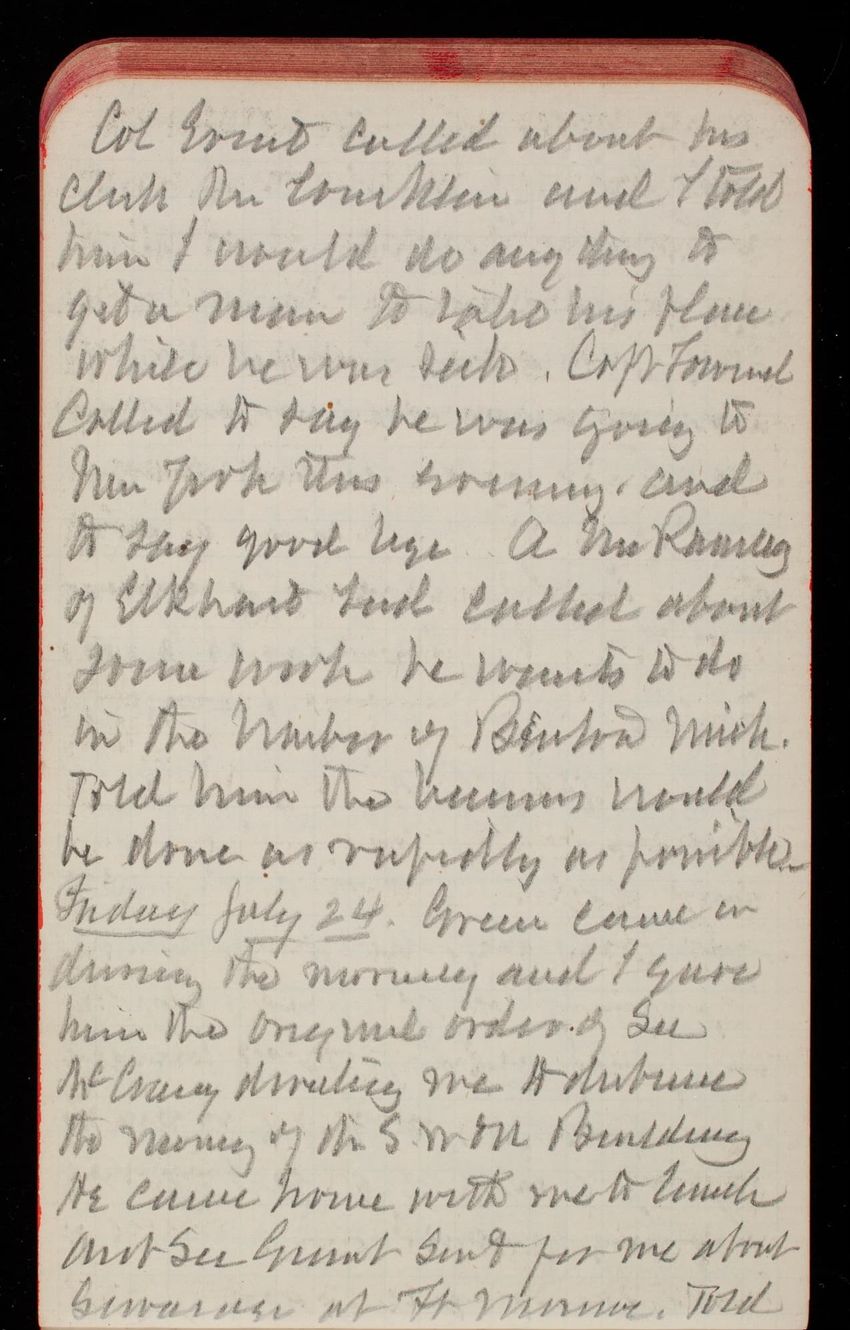 Col Ernst called about his
clerk Mr Conklin and I told
him I would do anything to
get a man to take his place
while he was sick. Capt Townsend
Called to say he was going to
New York this evening, and
to say good bye. A Mr Ramsey
of Elkhart Ind called about
some work he wants to do
in the harbor of Benton Mich.
Told him the business would
be done as rapidly as possible.
Friday July 24. Green came in
during the morning and I gave
him the original order of Sec
McCrary directing me to disburse
the money of the S W & N Building
He came home with me to lunch
Asst Sec Grant sent for me about
Sewerage at Ft Monroe. Told